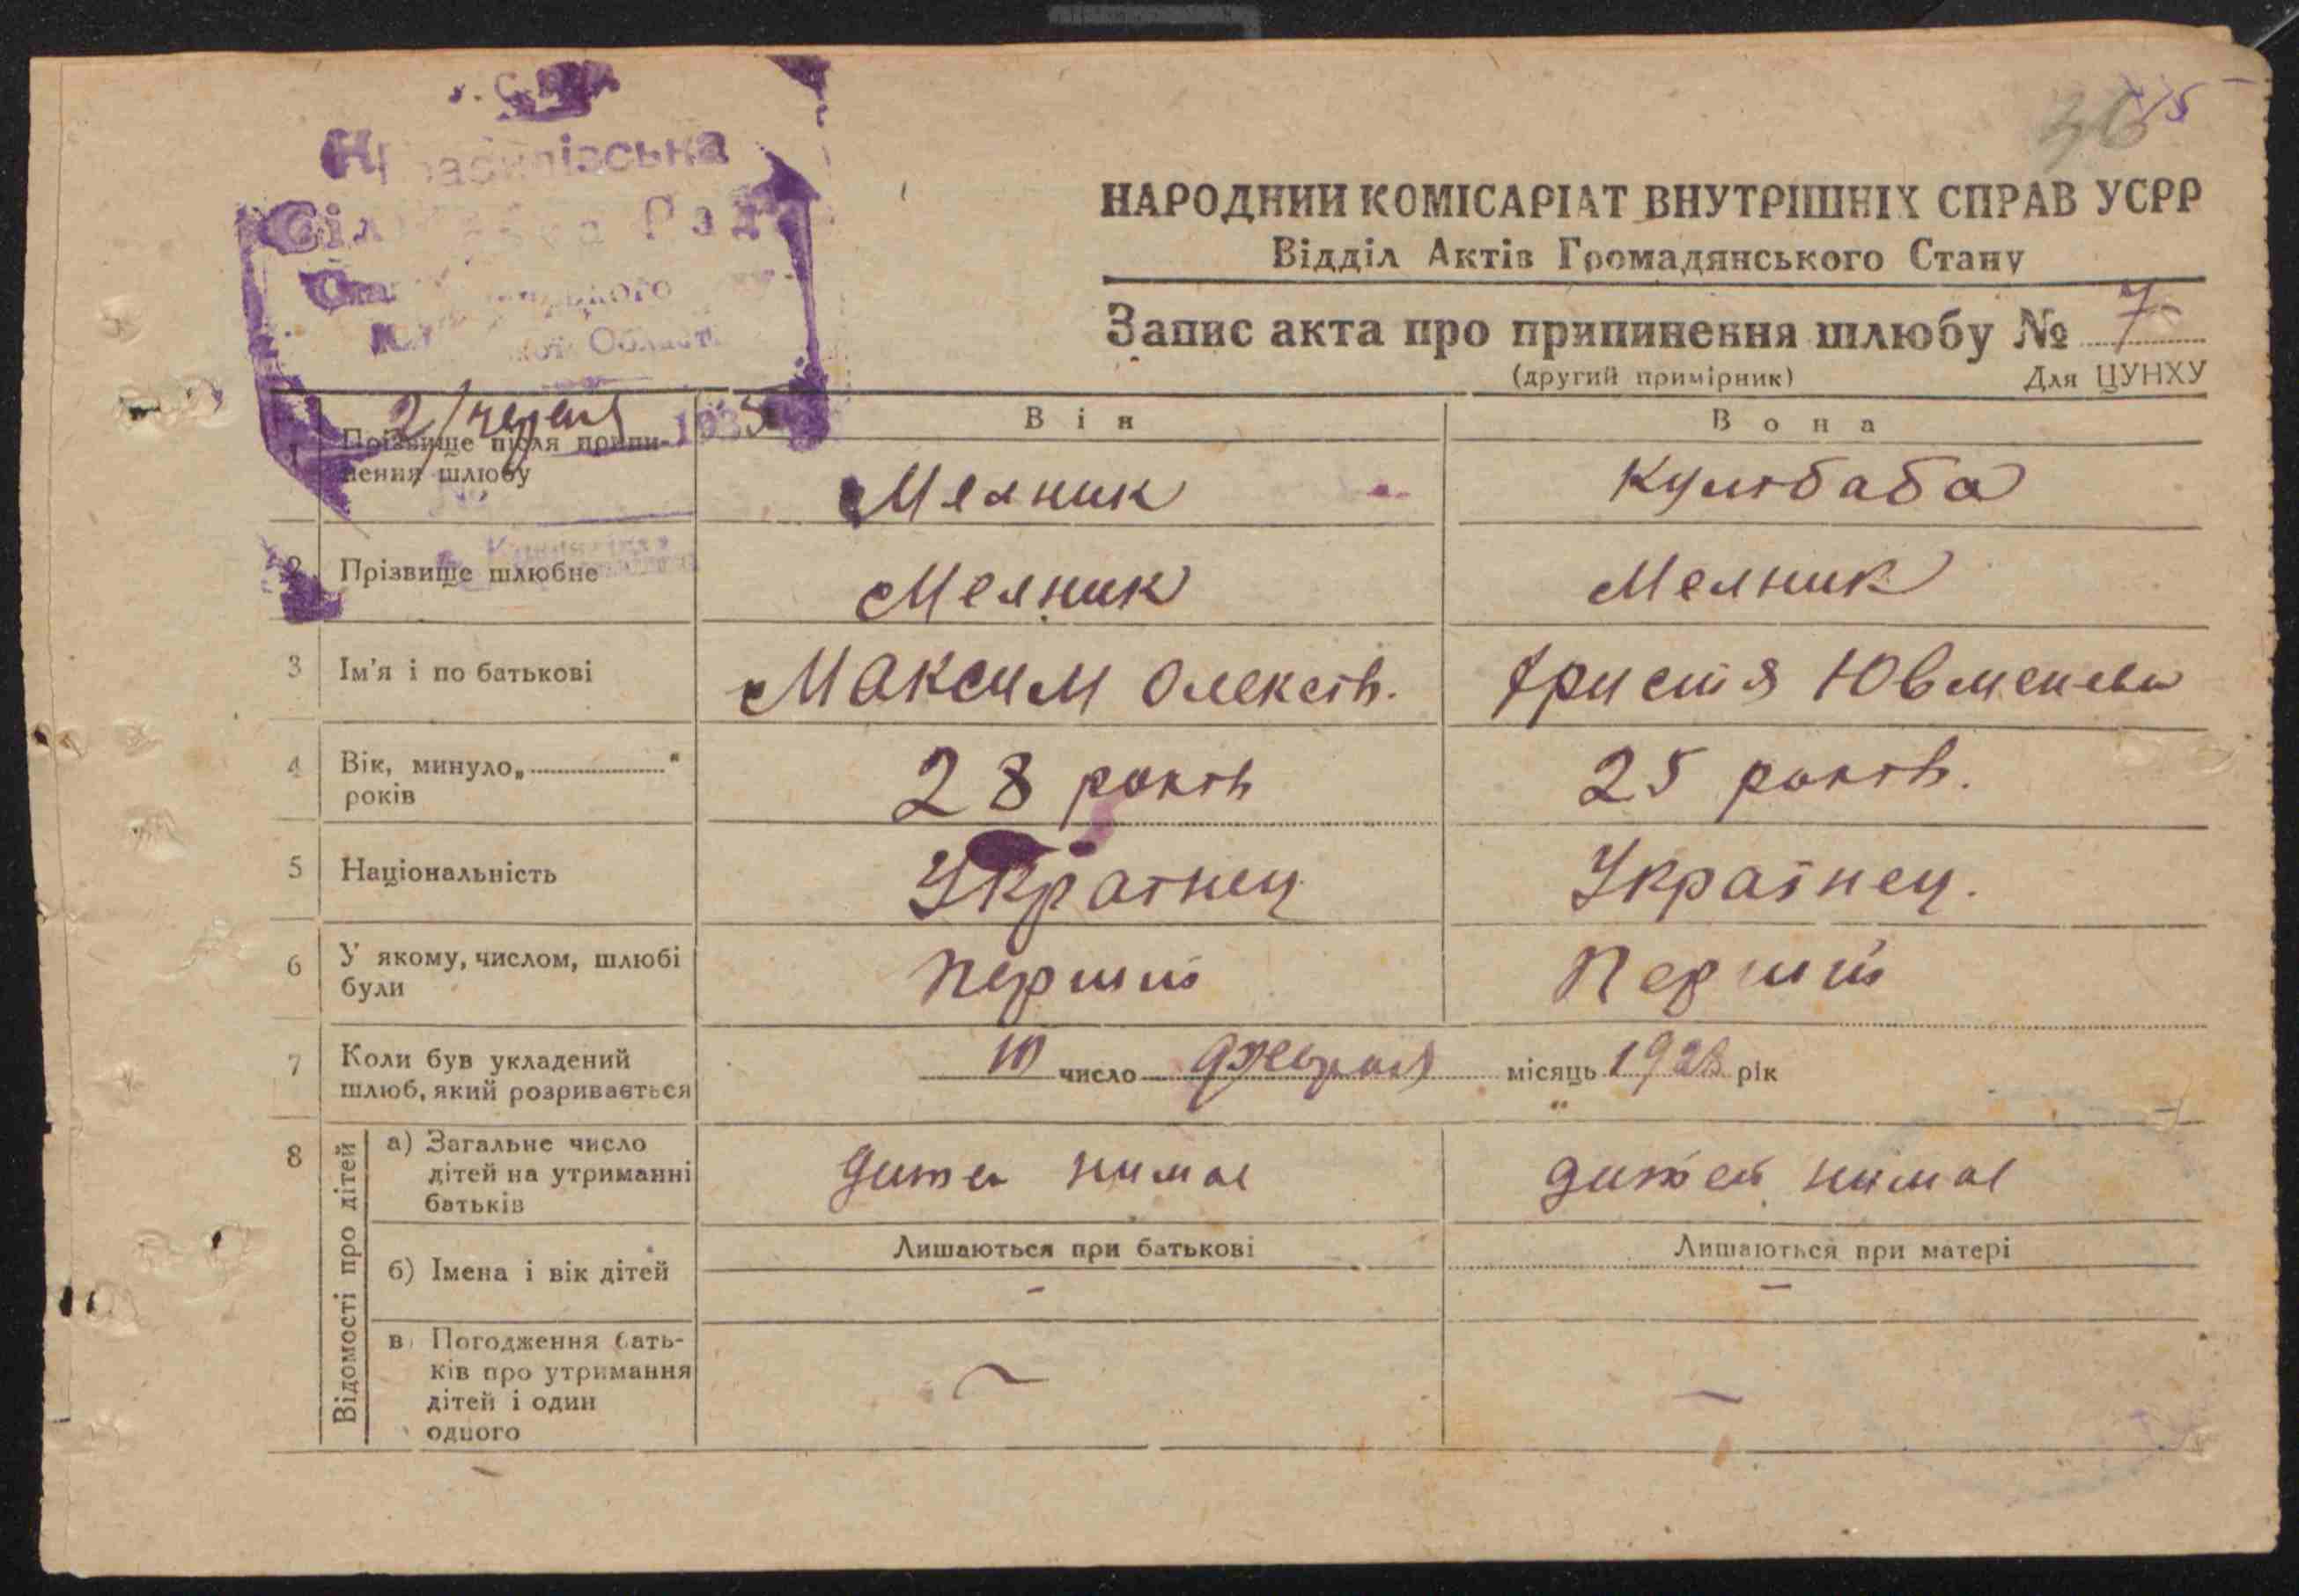 Рад
Області
НАРОДНИЙ КОМІСАРІАТ ВНУТРІШНІХ СПРАВ УСРР
Відділ Актів Громадянського Стану
Запис акта про припинення шлюбу № 7
(другий примірник) Для ЦУНХУ
2/червня 1935
Він Вона
1 Прізвище після припинення шлюбу
Мелник Кулібаба
2 Прізвище шлюбне Мелник Мелник
3 Ім'я і по батькові Максим Олексів. Христя Ювменовн
4 Вік, минуло „ “
років
28 років 25 років.
5 Національність Українец Українец.
6 У якому, числом, шлюбі
були
Перший Перший
7 Коли був укладений
шлюб, який розривається
10 число Февраля місяць 1928 рік
8 Відомості про дітей
а) Загальне число
дітей на утриманні
батьків
дитей нимає дитей нимає
б) Імена і вік дітей
Лишаються при батькові Лишаються при матері
в) Погодження бать-
ків про утримання
дітей і один
одного